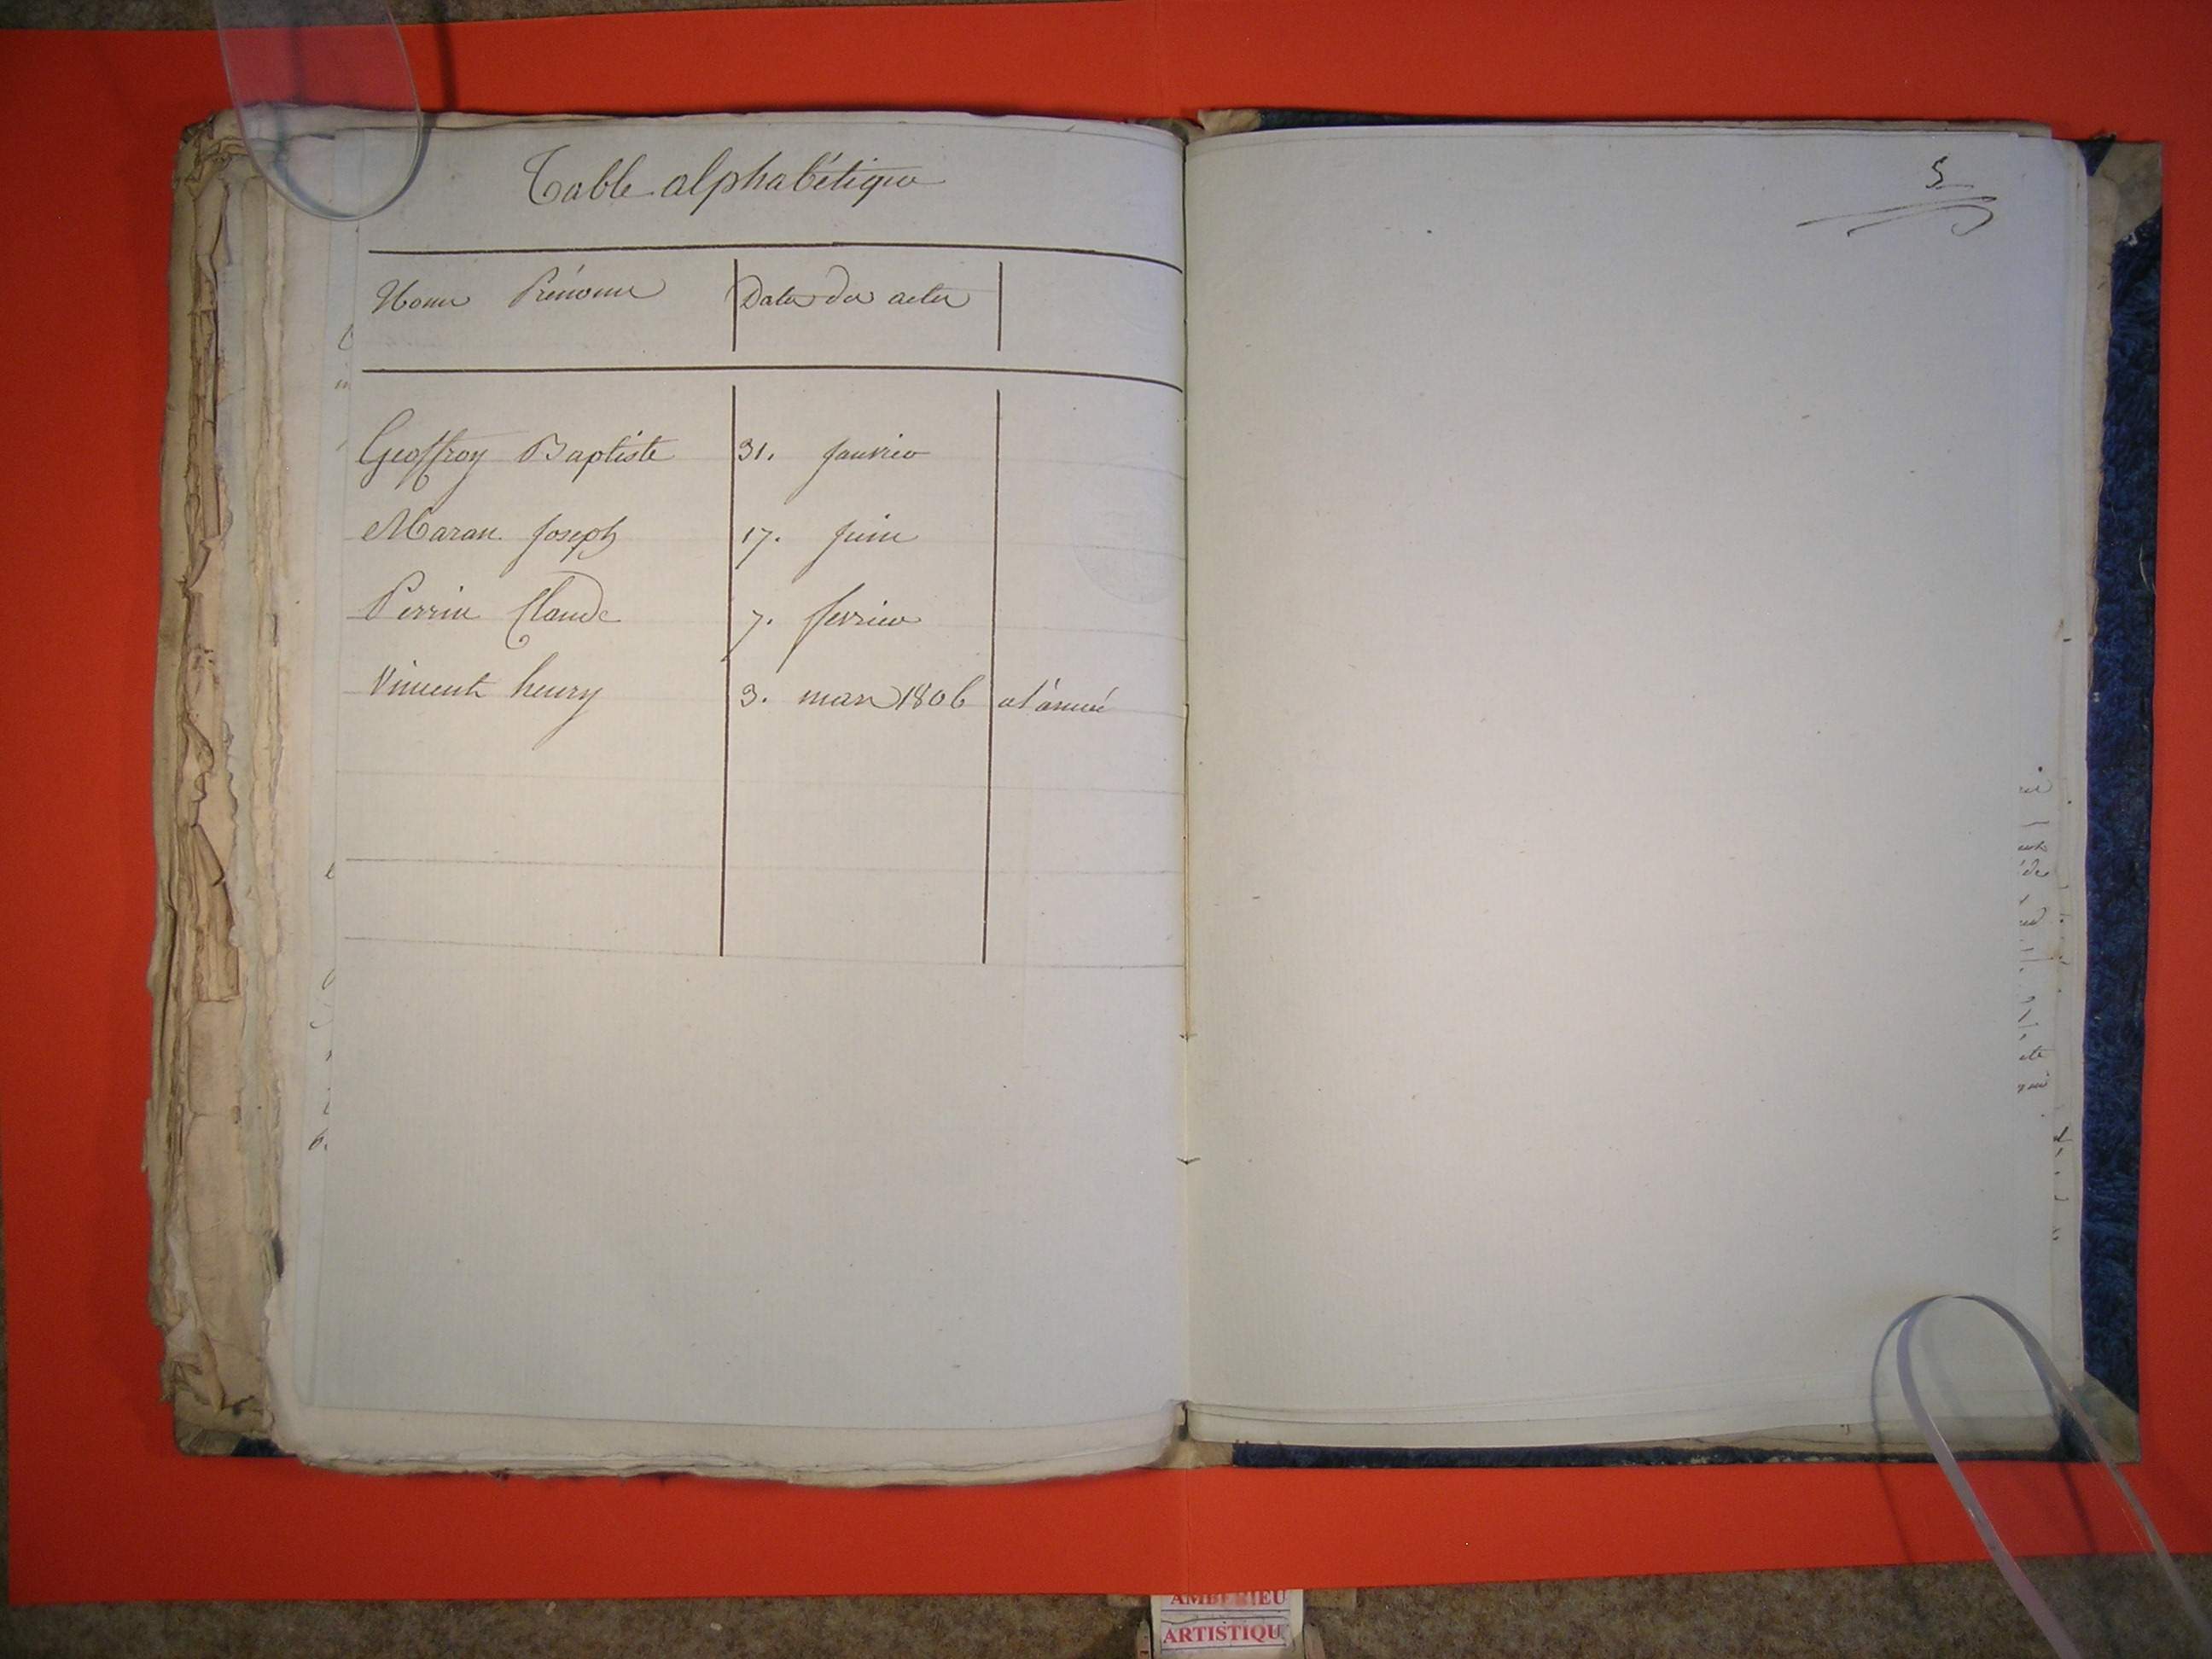 Table alphabétique
Noms Prénoms Dates des actes
Geoffroy Baptiste 31. janvier
Maran Joseph 17. juin
Perrin Claude 7. fevrier
Vincent henry 3. mars 1806 a l'armée
5
AMBERIEU
ARTISTIQU